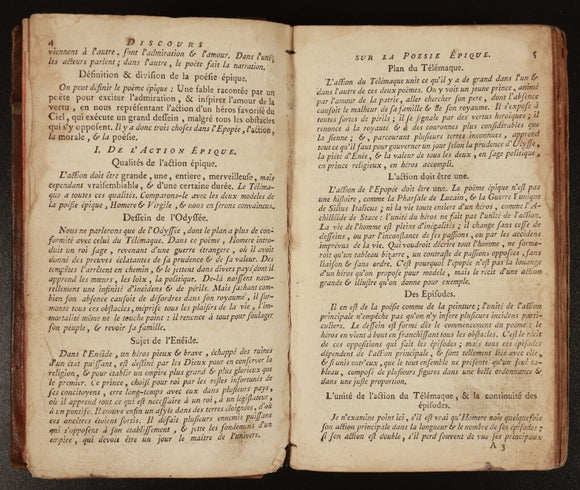 4 DISCOURS
viennent à l'autre, sont l'admiration & l'amour. Dans l'une,
les acteurs parlent ; dans l'autre, le poëte fait la narration.
Définition & division de la poésie épique.
On peut définir le poëme épique : Une fable racontée par un
poëte pour exciter l'admiration, & inspirer l'amour de la
vertu, en nous représentant l'action d'un héros favorisé du
Ciel, qui exécute un grand dessein, malgré tous les obstacles
qui s'y opposent. Il y a donc trois choses dans l'Epopée, l'action,
la morale, & la poésie.
I. DE L'ACTION ÉPIQUE.
Qualités de l'action épique.
L'action doit être grande, une, entiere, merveilleuse, mais
cependant vraisemblable, & d'une certaine durée. Le Téléma-
que a toutes ces qualités. Comparons-le avec les deux modeles de
la poésie épique, Homere & Virgile, & nous en serons convaincus.
Dessein de l'Odyssée.
Nous ne parlerons que de l'Odyssée, dont le plan a plus de con-
formité avec celui du Télémaque. Dans ce poëme, Homere intro-
duit un roi sage, revenant d'une guerre étrangere, où il avoit
donné des preuves éclatantes de sa prudence & de sa valeur. Des
tempêtes l'arrêtent en chemin, & le jettent dans divers pays dont il
apprend les mœurs, les loix, la politique. De-là naissent natu-
rellement une infinité d'incidens & de périls. Mais sachant com-
bien son absence causoit de désordres dans son royaume, il sur-
monte tous ces obstacles, méprise tous les plaisirs de la vie, l'im-
mortalité même ne le touche point : il renonce à tout pour soulager
son peuple, & revoir sa famille.
Sujet de l'Enéide.
Dans l'Enéide, un héros pieux & brave, échappé des ruines
d'un état puissant, est destiné par les Dieux pour en conserver la
religion, & pour établir un empire plus grand & plus glorieux que
le premier. Ce prince, choisi pour roi par les restes infortunés de
ses concitoyens, erre long-temps avec eux dans plusieurs pays,
où il apprend tout ce qui est nécessaire à un roi, à un législateur,
à un pontife. Il trouve enfin un asyle dans des terres éloignées, d'où
ses ancêtres étoient sortis. Il défait plusieurs ennemis puissans
qui s'opposent à son établissement, & jette les fondemens d'un
empire, qui devoit être un jour le maître de l'univers.
SUR LA POESIE ÉPIQUE. 5
Plan du Télémaque.
L'action du Télémaque unit ce qu'il y a de grand dans l'un &
dans l'autre de ces deux poëmes. On y voit un jeune prince, animé
par l'amour de la patrie, aller chercher son pere, dont l'absence
causoit le malheur de sa famille & de son royaume. Il s'expose à
toutes sortes de périls ; il se signale par des vertus héroïques ; il
renonce à la royauté & à des couronnes plus considérables que
la sienne ; &, parcourant plusieurs terres inconnues, apprend
tout ce qu'il faut pour gouverner un jour selon la prudence d'Ulysse,
la piété d'Enée, & la valeur de tous les deux, en sage politique,
en prince religieux, en héros accompli.
L'action doit être une.
L'action de l'Epopée doit être une. Le poëme épique n'est pas
une histoire, comme la Pharsale de Lucain, & la Guerre Punique
de Silius Italicus ; ni la vie toute entiere d'un héros, comme l'A-
chilléïde de Stace : l'unité du héros ne fait pas l'unité de l'action.
La vie de l'homme est pleine d'inégalités ; il change sans cesse de
desseins, ou par l'inconstance de ses passions, ou par les accidens
imprévus de la vie. Qui voudroit décrire tout l'homme, ne forme-
roit qu'un tableau bizarre, un contraste de passions opposées, sans
liaison & sans ordre. C'est pourquoi l'épopée n'est pas la louange
d'un héros qu'on propose pour modele, mais le récit d'une action
grande & illustre qu'on donne pour exemple.
Des Episodes.
Il en est de la poésie comme de la peinture ; l'unité de l'action
principale n'empêche pas qu'on n'y insere plusieurs incidens parti-
culiers. Le dessein est formé dès le commencement du poëme ; le
héros en vient à bout en franchissant tous les obstacles. C'est le récit
de ces oppositions qui fait les épisodes ; mais tous ces épisodes
dépendent de l'action principale, & sont tellement liés avec elle,
& si unis entr'eux, que le tout ensemble ne présente qu'un seul ta-
bleau, composé de plusieurs figures dans une belle ordonnance &
dans une juste proportion.
L'unité de l'action du Télémaque, & la continuité des
épisodes.
Je n'examine point ici, s'il est vrai qu'Homere noie quelquefois
son action principale dans la longueur & le nombre de ses épisodes ;
si son action est double, s'il perd souvent de vue ses principaux
A 3